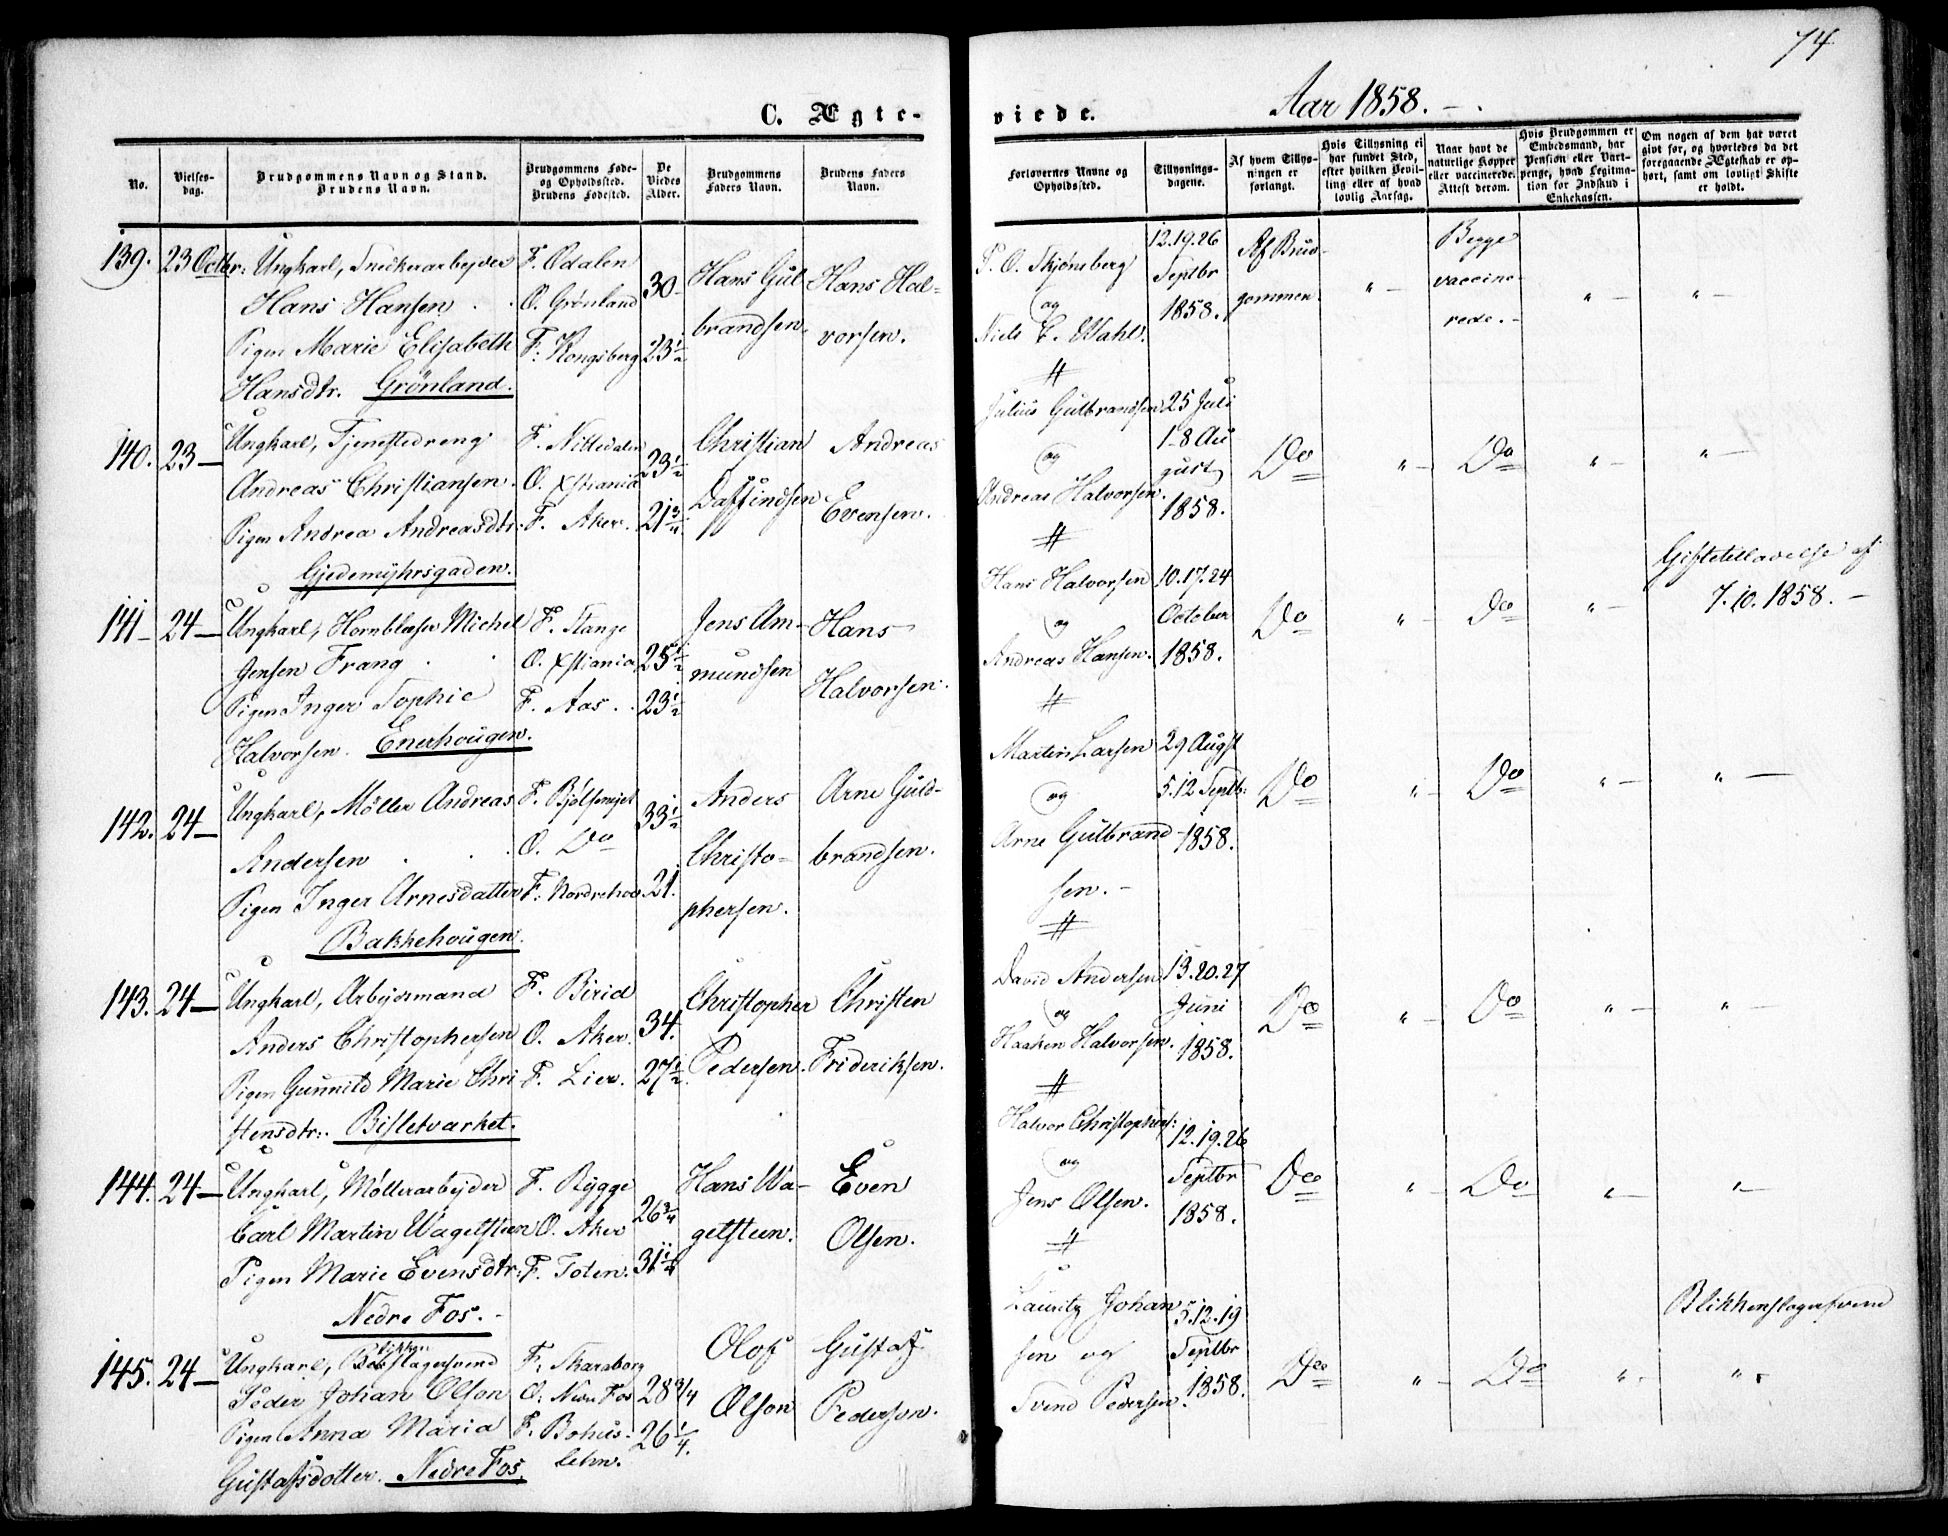 74
C. Ægte-
viede.
Aar 1858.
No.
Vielses-
dag.
Brudgommens Navn og Stand.
Brudens Navn.
Brudgommens Føde-
og Opholdssted.
Brudens Fødested.
De
Viedes
Alder.
Brudgommens
Faders Navn.
Brudens Faders
Navn.
Forlovernes Navne og
Opholdssted.
Tillysnings-
dagene.
Af hvem Tillys-
ningen er
forlangt.
Hvis Tillysning ei
har fundet Sted,
efter hvilken Bevil-
ling eller af hvad
lovlig Aarsag.
Naar havt de
naturlige Kopper
eller vaccinerede.
Attest derom.
Hvis Brudgommen er
Embedsmand, har
Pension eller Vart-
penge, hvad Legitma-
tion for Indskud i
Enkekassen.
Om nogen af dem har været
givt før, og hvorledes da det
foregaaende Ægteskab er op-
hørt, samt om lovligt Skifte
er holdt.
139. 23 Octbr:
Ungkarl, Snedkerarbejder
Hans Hansen
Pigen Marie Elisabeth
Hansdtr. Grønland.
F. Odalen
O. Grønland
F: Kongsberg
30
23 1/2
Hans Gul
brandsen.
Hans Hal-
vorsen.
P. O. Skjønsberg
og
Niels C. Wahl.
12.19.26
Septbr
1858.
Af Brud-
gommen.
" -
Begge
vaccine-
rede. -
" -
" -
140. 23 -
Ungkarl, Tjenestedreng
Andreas Christiansen.
Pigen Andrea Andreasdtr.
Gjedemyhrsgaden.
F. Nittedalen
O. Xstiania
F. Aker.
23 1/2
21 3/4
Christian
Daffindsen
Andreas
Evensen.
Julius Gulbrandsen
og
Andreas Halvorsen.
25 Juli
1-8 Au
gust
1858.
Do
" -
Do
" -
" -
141 - 24 -
Ungkarl, Hornblæser Michel
Jensen Frang
Pigen Inger Sophie
Halvorsen. Enerhougen.
F. Stange
O. Xstiania
F. Aas.
25 1/2
23 1/2
Jens Am-
mundsen
Hans
Halvorsen.
Hans Halvorsen
og
Andreas Hansen.
10.17.24
October
1858.
Do
" -
Do
" -
Giftetilladelse af
7.10.1858. -
142. 24 -
Ungkarl, Møller Andreas
Andersen
Pigen Inger Arnesdatter
Bakkehougen.
F. Bjølsenojet
O. Do
F: Norderhov
33 1/2
21.
Anders
Christo-
phersen.
Arne Guld-
brandsen.
Martin Larsen
og
Arne Gulbrand-
sen. -
29 Augst
5.12 Septb:
1858.
Do
" -
Do
" -
" -
143. 24 -
Ungkarl, Arbejdsmand
Anders Christophersen
Pigen Gunnild Marie Chri
stensdtr:. Bisletvarket.
F. Birid
O. Aker.
F. Lier.
34.
27 1/2.
Christopher
Pedersen.
Christen
Frideriksen.
David Andersen
og
Haaken Halvorsen.
13.20.27
Juni
1858.
Do
" -
Do
" -
" -
144. 24 -
Ungkarl, Møllerarbejder
Carl Martin Wagelsteen
Pigen Marie Evensdtr:
Nedre Fos. -
F. Rygge
O. Aker
F. Toten.
26 3/4
31 1/4
Hans Wa-
gelsteen.
Even
Olsen.
Halvor Christophers:
og
Jens Olsen.
12.19.26
Septbr
1858.
Do
" -
Do
" -
" -
145. 24 -
Ungkarl, slagersvend
Peder Johan Olson
Pigen Anna Maria
Gustafsdotter. Nedre Fos.
F. Skaraborg
O. Nedre Fos
F. Bohus-
lehn.
28 3/4
26 1/4.
Olof
Olson
Gustaf
Pederson.
Lauritz Johan
sen og
Svend Pedersen.
5.12.19
Septbr
1858.
Do
" -
Do
" -
" -
Blikkenslagersvend